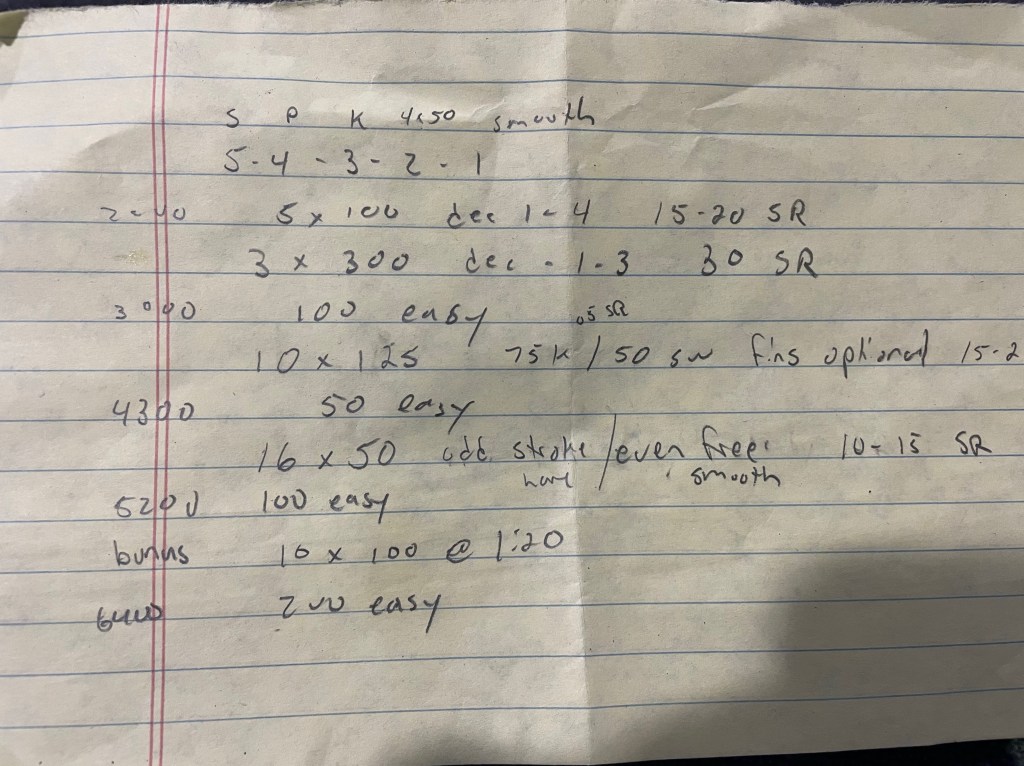 S P K 4x50 smooth
5-4-3-2-1
2000 5 x 100 dec 1-4 15-20 SR
3 x 300 dec - 1-3 30 SR
3000 100 easy
.05 SR
10 x 125 75K / 50 sw fins optional 15-2
4300 50 easy
16 x 50 odd stroke / even free 10-15 SR
smooth
5200 100 easy
bonus 10 x 100 @ 1:20
6400 200 easy